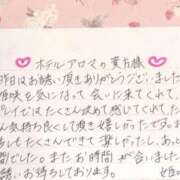 ホテルアロマの貴方様
昨日はお誘い頂きありがとうございました
咲を気に会いに来てくれて
プレイではたくさん感じてくれて
ん気持ち良くして頂き嬉しかったです
もたくさんできて楽しかった、あっ
間でした またお時間が合いました
お誘いお待ちしております